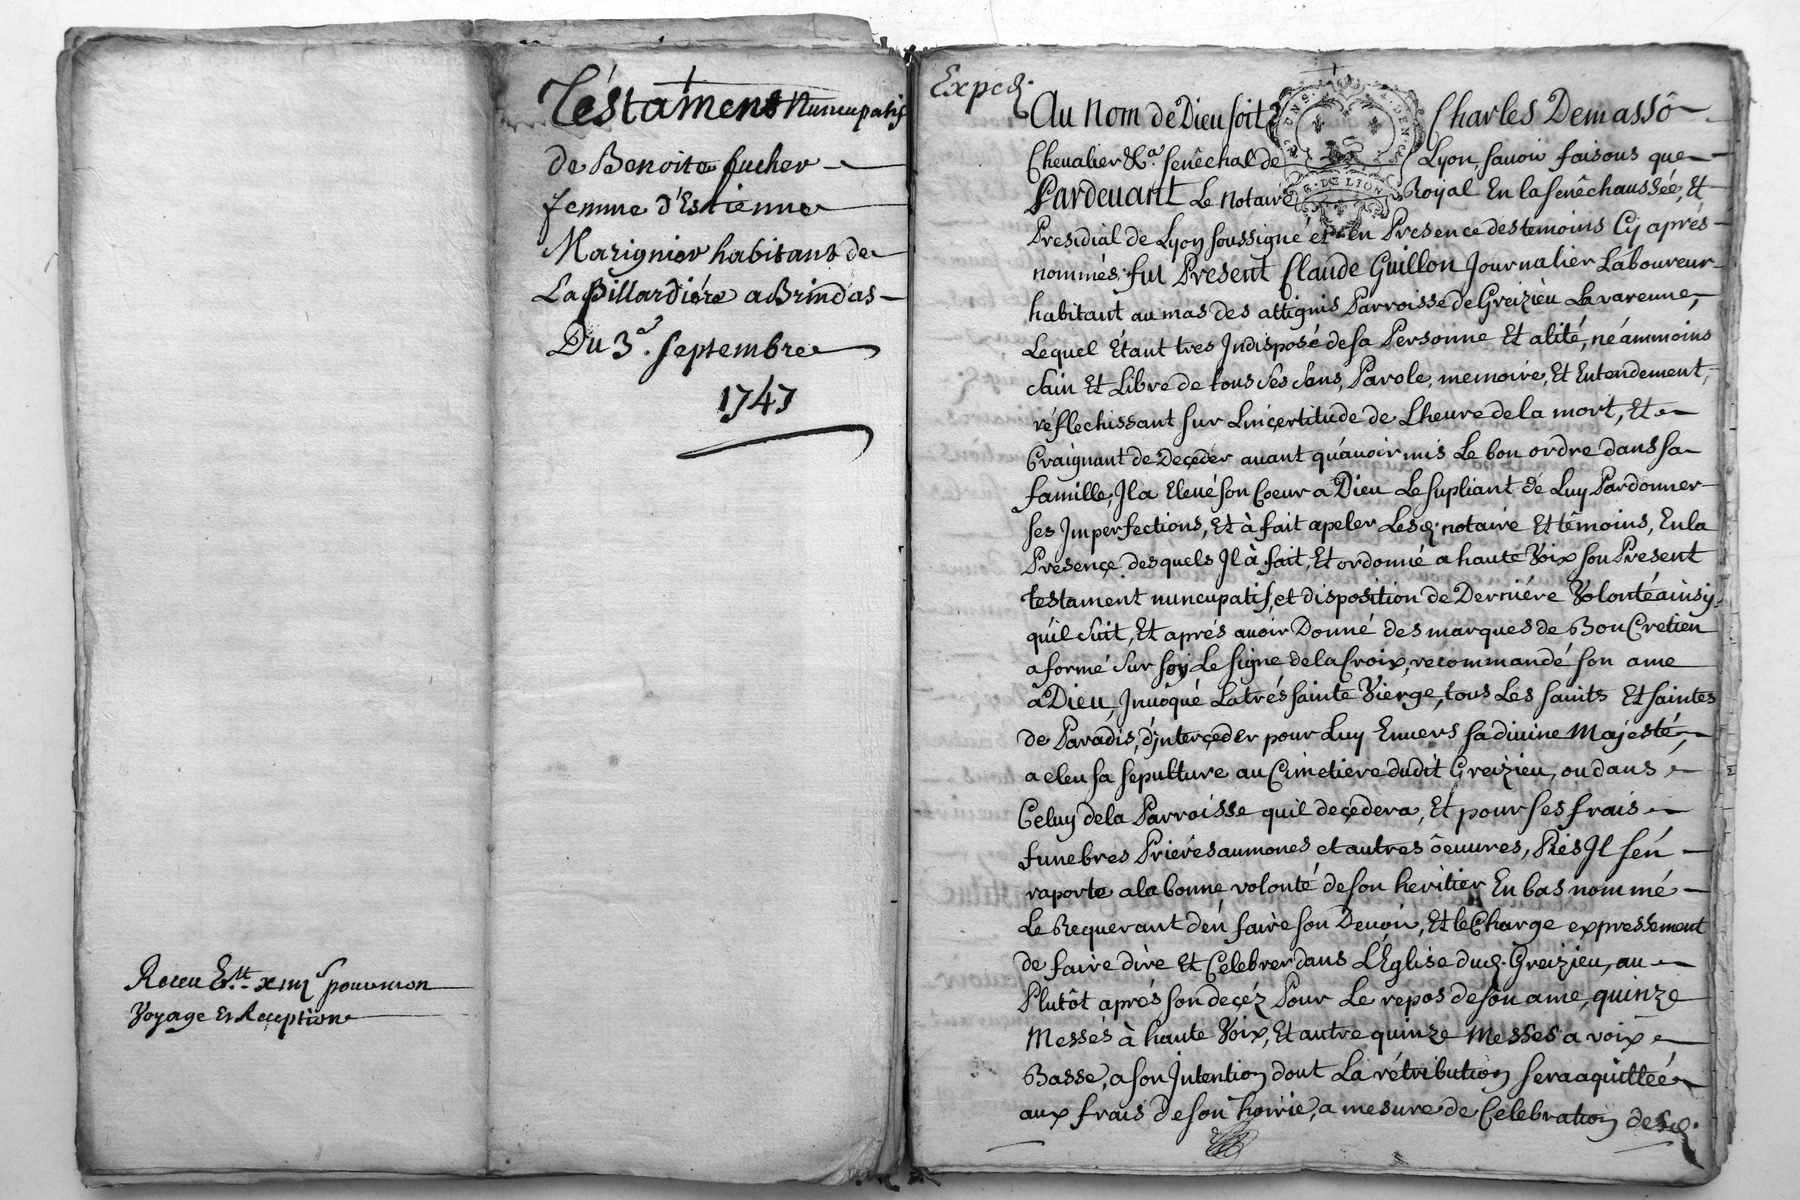 Téstament Nuncupatif
de Benoite fucher
femme d'Estienne
Marignier habitans de
La Billardiére a Brindas
Du 3.e septembre
1747
Receu
Voyage Et Reçeption
Exped.
Au Nom de Dieu soit Charles Demassô
Chevalier &a. senêchal de Lyon, savoir faisons que
Pardevant Le Notaire Royal En la senêchaussée, Et
G. DE LION
Presidial de Lyon soussigné et en Presence des temoins Cy aprés
nommés, fut Present Claude Guillon Journalier Laboureur
habitant au mas des attignis Parroisse de Greizieu Lavarenne,
Lequel Étant tres Indisposé de sa Personne Et alité, néammoins
sain Et Libre de tous ses sens, Parole, memoire, Et Entendement,
réflechissant sur L'inçertitude de L'heure de la mort, Et
Craignant de Deçeder avant qu'avoir mis Le bon ordre dans sa
famille, Il a Elevé son Coeur a Dieu Le supliant de Luy Pardonner
ses Imperfections, Et à fait apeler Lesd. notaire Et têmoins, En la
Presençe desquels Il à fait, Et ordonné a haute Voix son Present
testament nuncupatif, et disposition de Derniére Volonté ainsy
qu'il suit, Et aprés avoir Donné des marques de Bon Cretien
a formé sur soy Le signe de la Croix, recommandé son ame
à Dieu, Invôqué La trés sainte Vierge, tous Les saints Et saintes
de Paradis, d'Interçeder pour Luy Envers sa divine Majesté,
a eleu sa sepulture au Cimetiere dudit Greizieu, ou dans
Celuy de la Parroisse quil deçedera, Et pour ses frais
funebres Priéres aumones et autres ôeuvres, Pies Il s'en
raporte a la bonne volonté de son heritier En bas nommé
Le Requerant d'en faire son Devoir, Et le Charge expressement
de faire dire Et Celebrer dans L'Église dud. Greizieu, au
Plutôt aprés son deçéz Pour Le repos de son ame, quinze
Messes à haute Voix, Et autre quinze Messes a voix
Basse, a son Intention dont La rétribution sera aquittée
aux frais de son hoirie, a mesure de Celebration desd.